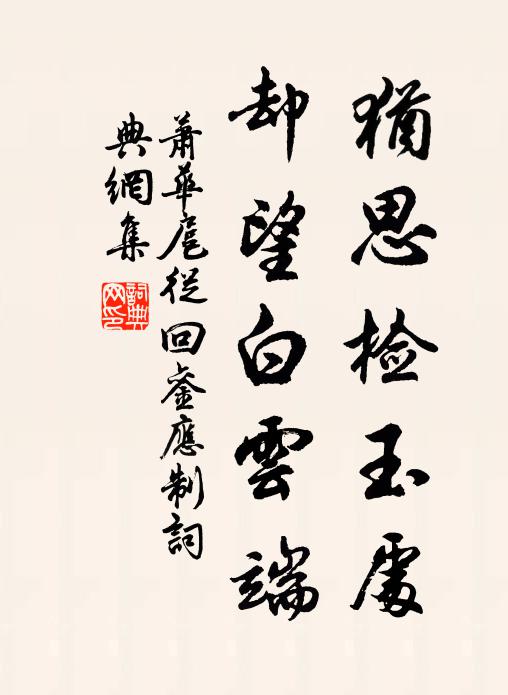 猶思检玉處
却望白雲端
蕭華扈從回鑾應制詞
典網集
詞典网印